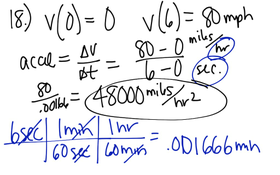 18.) V(0) = 0 V(6) = 80 mph
accel = ΔV/Δt = (80 - 0)/(6 - 0) miles/hr / sec.
80/.00166 = 48000 miles/hr²
6 sec | 1 min | 1 hr
60 sec | 60 min = .001666